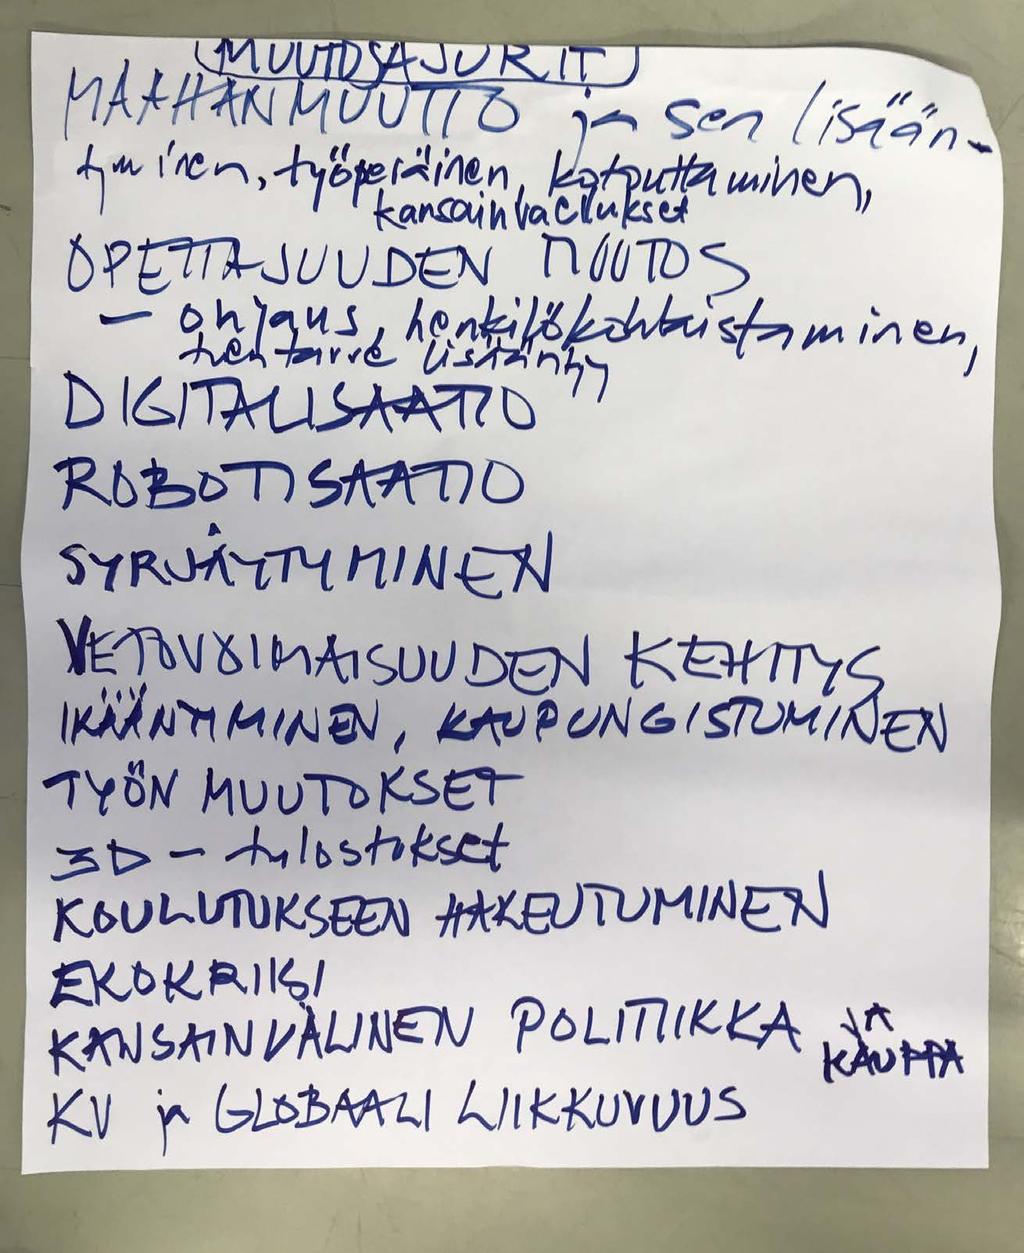 MUUTOSAJURIT
MAAHANMUUTTO ja sen lisään-
tyminen, työperäinen, kotouttaminen,
kansainvaellukset
OPETTAJUUDEN MUUTOS
- ohjaus, henkilökohtaistaminen,
tarve lisääntyy
DIGITALISAATIO
ROBOTISAATIO
SYRJÄYTYMINEN
VETOVOIMAISUUDEN KEHITYS
IKÄÄNTYMINEN, KAUPUNGISTUMINEN
TYÖN MUUTOKSET
3D - tulostukset
KOULUTUKSEEN HAKEUTUMINEN
EKOKRIISI
KANSAINVÄLINEN POLITIIKKA JA
KAUPPA
KV ja GLOBAALI LIIKKUVUUS